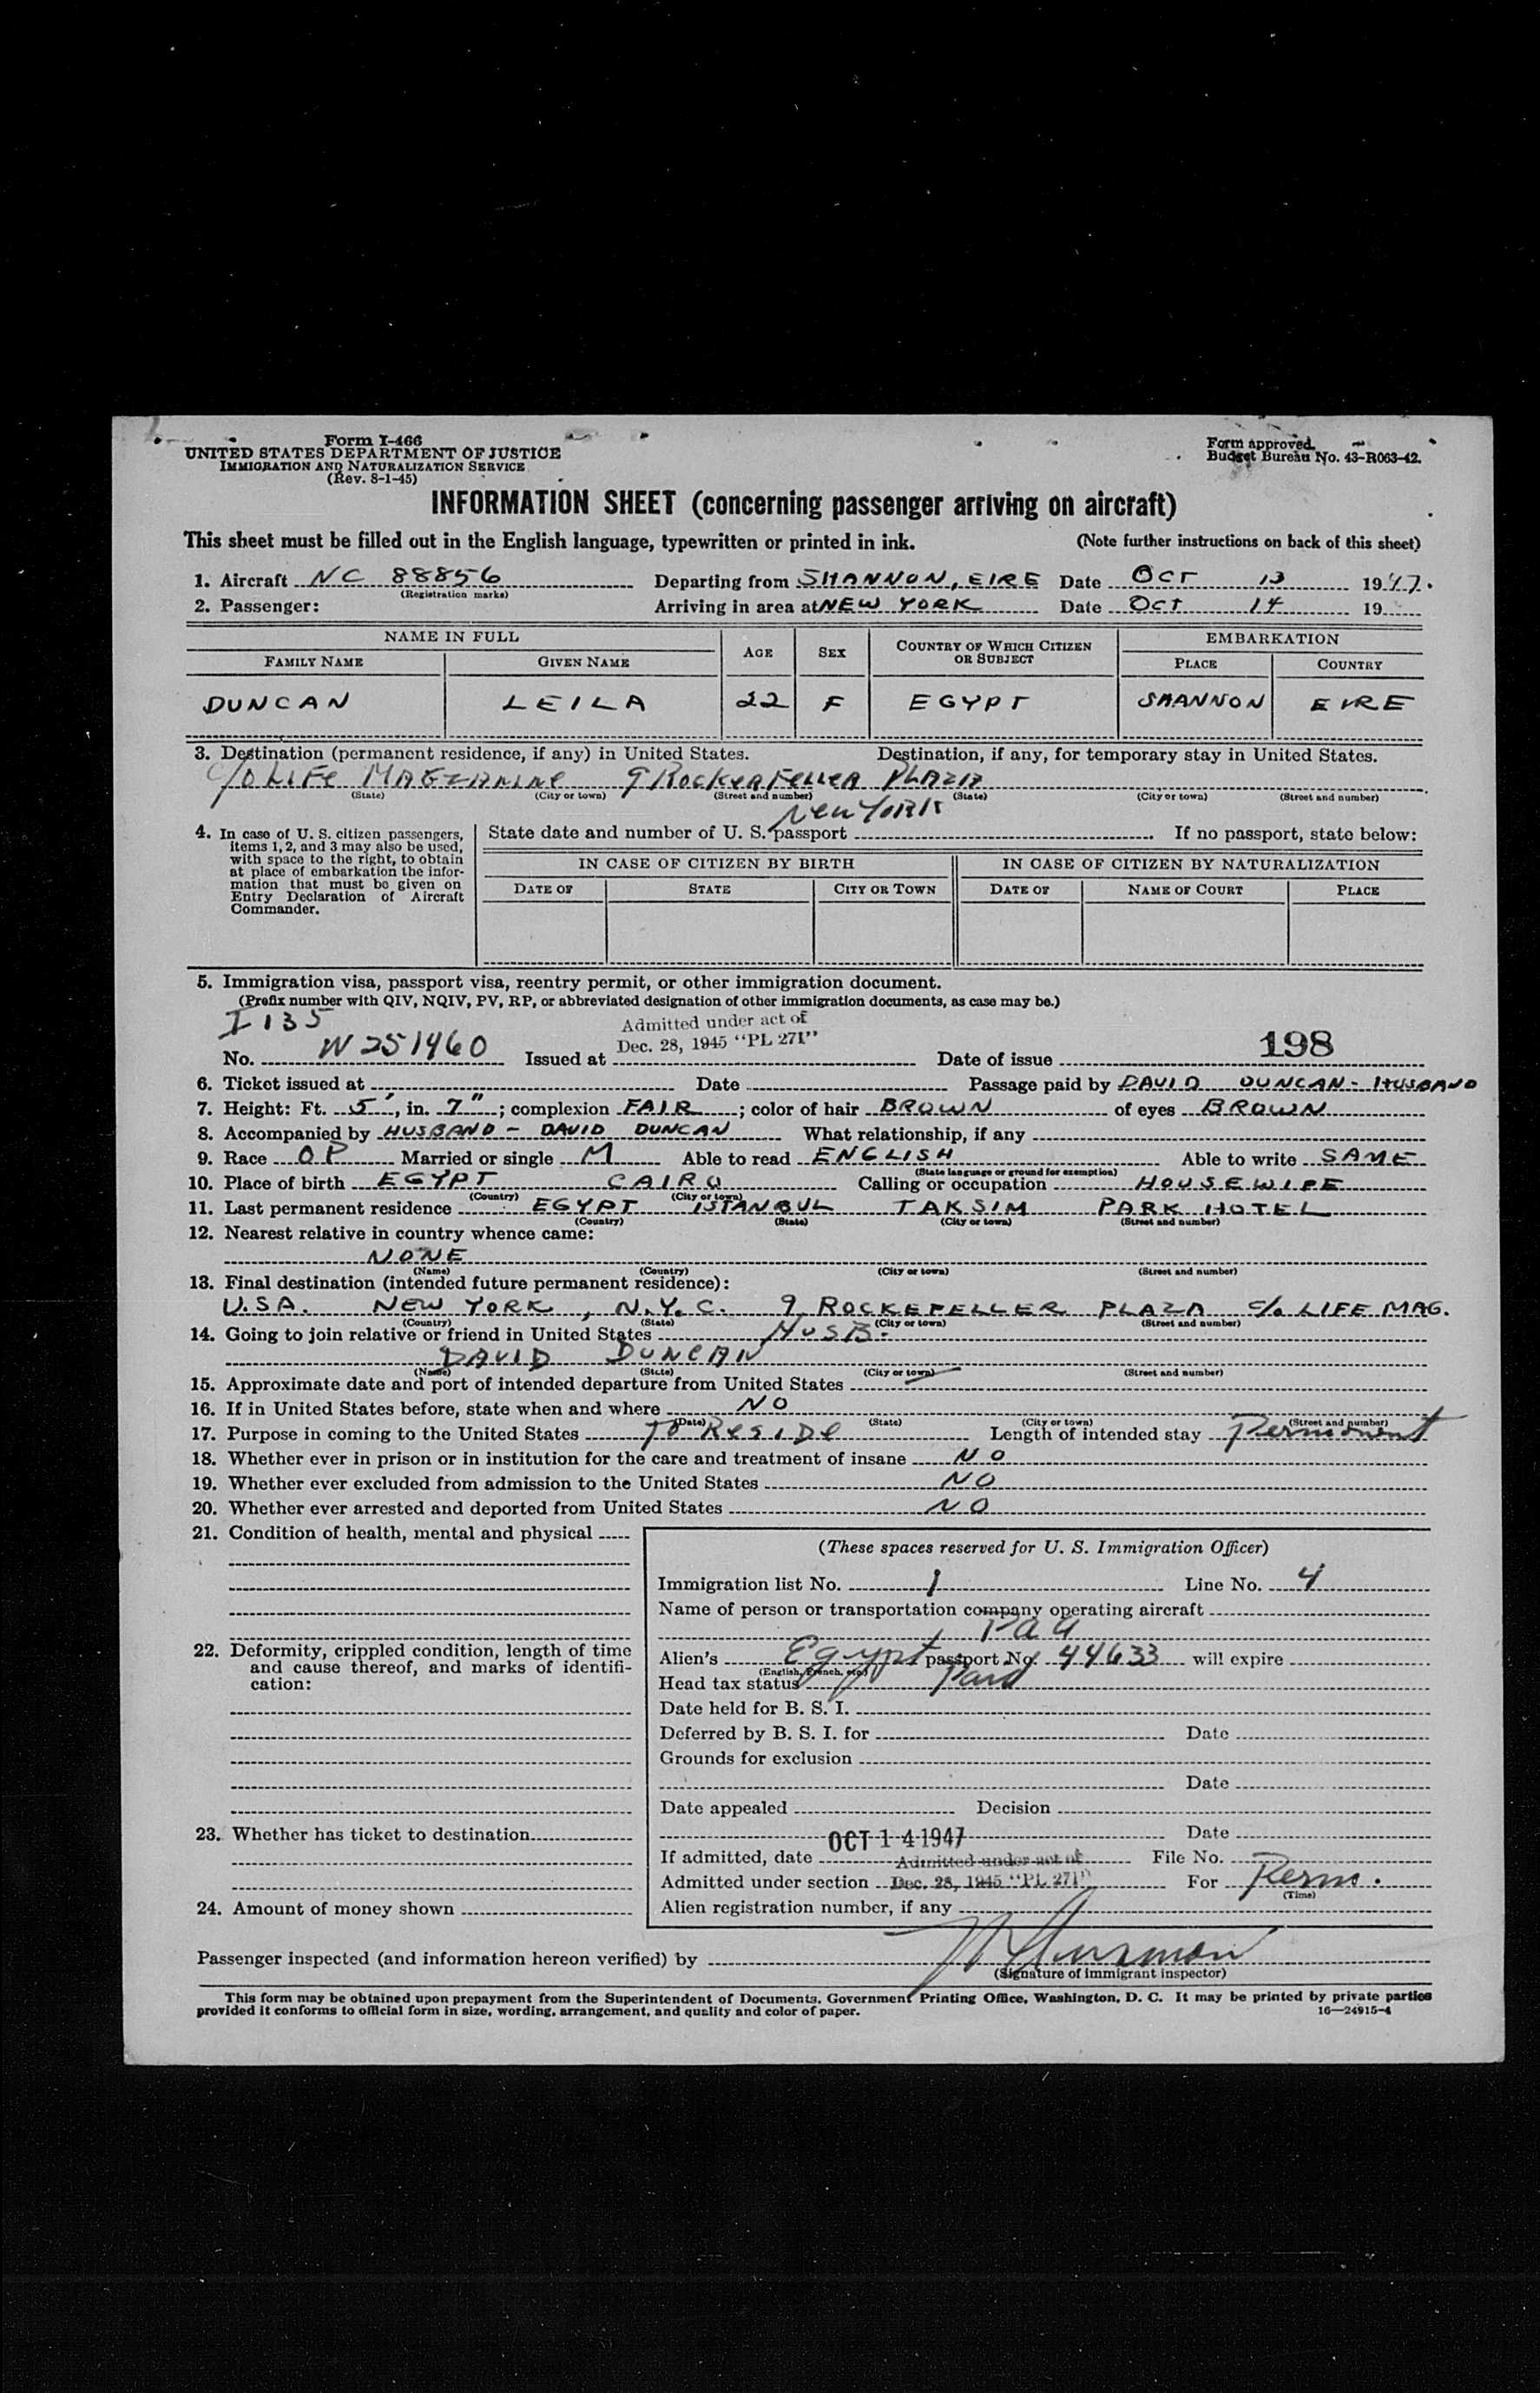 Form I-466
UNITED STATES DEPARTMENT OF JUSTICE
IMMIGRATION AND NATURALIZATION SERVICE
(Rev. 8-1-45)
Form approved.
Budget Bureau No. 43-R063-42.
INFORMATION SHEET (concerning passenger arriving on aircraft)
This sheet must be filled out in the English language, typewritten or printed in ink. (Note further instructions on back of this sheet)
1. Aircraft NC 88856 Departing from SHANNON, EIRE Date OCT 13 1947.
(Registration marks)
2. Passenger: Arriving in area at NEW YORK Date OCT 14 19
NAME IN FULL AGE SEX COUNTRY OF WHICH CITIZEN OR SUBJECT EMBARKATION
FAMILY NAME GIVEN NAME PLACE COUNTRY
DUNCAN LEILA 22 F EGYPT SHANNON EIRE
3. Destination (permanent residence, if any) in United States. Destination, if any, for temporary stay in United States.
C/O LIFE MAGZANINE 9 ROCKEAFELLER PLAZA
(State) (City or town) (Street and number) (State) (City or town) (Street and number)
New YORK
4. In case of U. S. citizen passengers, items 1, 2, and 3 may also be used, with space to the right, to obtain at place of embarkation the information that must be given on Entry Declaration of Aircraft Commander.
State date and number of U. S. passport . If no passport, state below:
IN CASE OF CITIZEN BY BIRTH IN CASE OF CITIZEN BY NATURALIZATION
DATE OF STATE CITY OR TOWN DATE OF NAME OF COURT PLACE
5. Immigration visa, passport visa, reentry permit, or other immigration document.
(Prefix number with QIV, NQIV, PV, RP, or abbreviated designation of other immigration documents, as case may be.)
I 135
Admitted under act of
Dec. 28, 1945 "PL 271"
198
No. W 251460 Issued at Date of issue
6. Ticket issued at Date Passage paid by DAVID DUNCAN - HUSBAND
7. Height: Ft. 5', in. 7"; complexion FAIR; color of hair BROWN of eyes BROWN
8. Accompanied by HUSBAND - DAVID DUNCAN What relationship, if any
9. Race OP Married or single M Able to read ENGLISH Able to write SAME
(State language or ground for exemption)
10. Place of birth EGYPT CAIRO Calling or occupation HOUSEWIFE
(Country) (City or town)
11. Last permanent residence EGYPT ISTANBUL TAKSIM PARK HOTEL
(Country) (State) (City or town) (Street and number)
12. Nearest relative in country whence came:
NONE
(Name) (Country) (City or town) (Street and number)
13. Final destination (intended future permanent residence):
U.S.A. NEW YORK, N.Y.C. 9 ROCKEFELLER PLAZA C/o LIFE MAG.
(Country) (State) (City or town) (Street and number)
14. Going to join relative or friend in United States HUSB.
DAVID DUNCAN
(Name) (State) (City or town) (Street and number)
15. Approximate date and port of intended departure from United States
16. If in United States before, state when and where NO
(Date) (State) (City or town) (Street and number)
17. Purpose in coming to the United States TO RESIDE Length of intended stay Permanent
18. Whether ever in prison or in institution for the care and treatment of insane NO
19. Whether ever excluded from admission to the United States NO
20. Whether ever arrested and deported from United States NO
21. Condition of health, mental and physical
22. Deformity, crippled condition, length of time and cause thereof, and marks of identification:
23. Whether has ticket to destination
24. Amount of money shown
(These spaces reserved for U. S. Immigration Officer)
Immigration list No. 1 Line No. 4
Name of person or transportation company operating aircraft
PAA
Alien's Egypt passport No. 44633 will expire
(English, French, etc.)
Head tax status Paid
Date held for B. S. I.
Deferred by B. S. I. for Date
Grounds for exclusion
Date
Date appealed Decision
OCT 14 1947 Date
If admitted, date Admitted under act of File No.
Admitted under section Dec. 28, 1945 "PL 271" For Perm.
(Time)
Alien registration number, if any
Passenger inspected (and information hereon verified) by
(Signature of immigrant inspector)
This form may be obtained upon prepayment from the Superintendent of Documents, Government Printing Office, Washington, D. C. It may be printed by private parties
provided it conforms to official form in size, wording, arrangement, and quality and color of paper. 16—24915-4